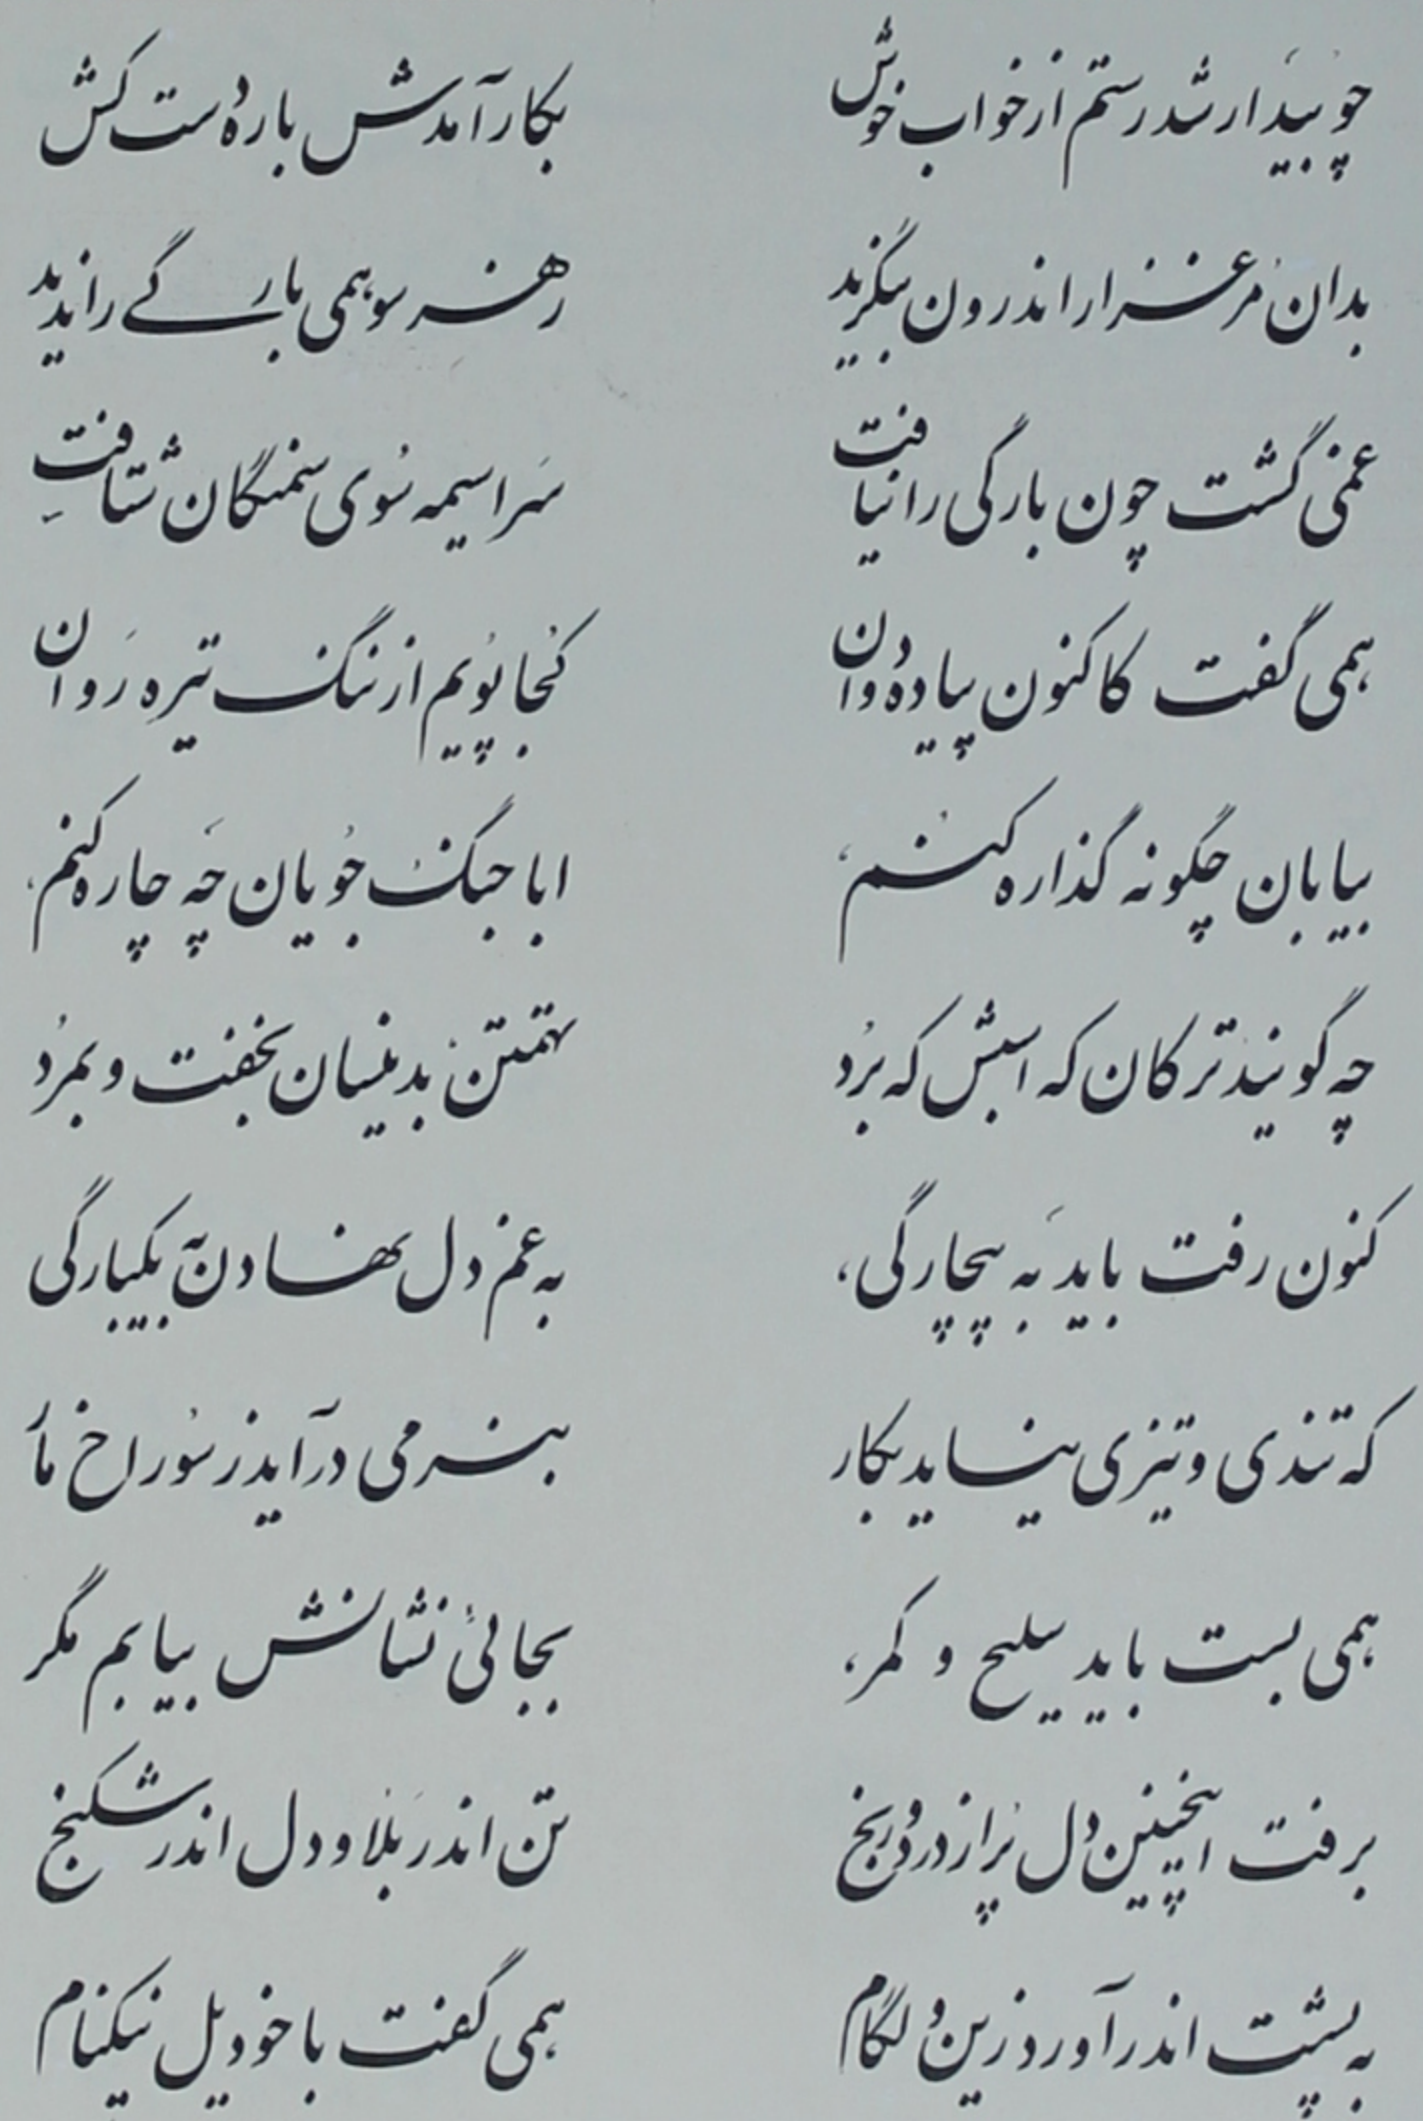 چو بیدار شد رستم از خواب خوش بکار آمدش باره دست کش
بدان مرغزار اندرون بنگرید ز هر سو همی بارگی را ندید
غمی گشت چون بارگی را نیافت سراسیمه سوی سمنگان شتافت
همی گفت کاکنون پیاده دوان کجا پویم از ننگ تیره روان
بیابان چگونه گذاره کنم ابا جنگ جویان چه چاره کنم
چه گویند ترکان که اسبش که برد تهمتن بدینسان بخفت و بمرد
کنون رفت باید به بیچارگی، به غم دل نهادن به یکبارگی
که تندی و تیزی نیاید بکار بنرمی درآید ز سوراخ مار
همی بست باید سلیح و کمر، بجائی نشانش بیابم مگر
برفت اینچنین دل پر از درد و رنج تن اندر بلا و دل اندر شکنج
به پشت اندر آورد زین و لگام همی گفت با خود یل نیکنام